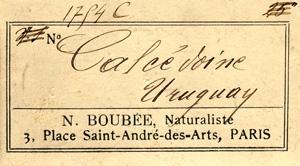 1754 C 25
21 No. Calcédoine
Uruguay
N. BOUBÉE, Naturaliste
3, Place Saint-André-des-Arts, PARIS